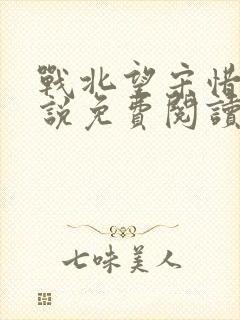 戰北望宋惜
說免費閱讀
七味美人